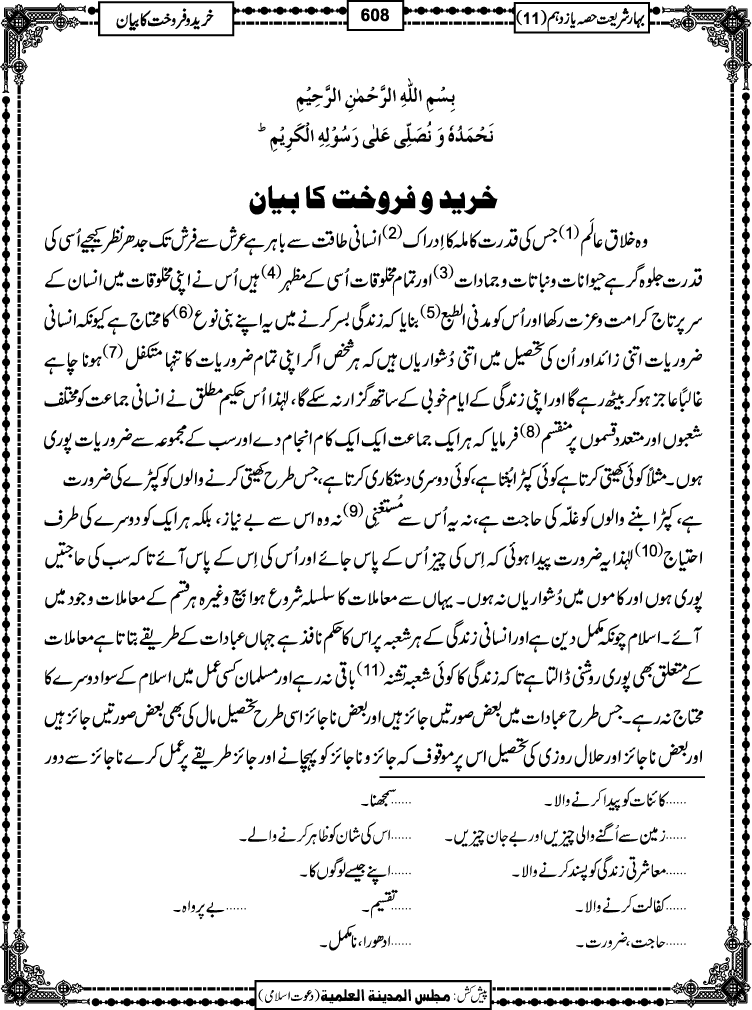 بہار شریعت حصہ یازدہم (11)
608
خرید و فروخت کا بیان
بِسْمِ اللہِ الرَّحْمٰنِ الرَّحِیْمِ
نَحْمَدُہٗ وَ نُصَلِّی عَلٰی رَسُوْلِہِ الْکَرِیْمِ ؕ
خرید و فروخت کا بیان
وہ خلاق عالَم (1) جس کی قدرت کاملہ کا اِدراک (2) انسانی طاقت سے باہر ہے عرش سے فرش تک جدھر نظر کیجیے اُسی کی
قدرت جلوہ گر ہے حیوانات و نباتات و جمادات (3) اور تمام مخلوقات اُسی کے مظہر (4) ہیں اُس نے اپنی مخلوقات میں انسان کے
سر پر تاج کرامت و عزت رکھا اور اُس کو مدنی الطبع (5) بنایا کہ زندگی بسر کرنے میں یہ اپنے بنی نوع (6) کا محتاج ہے کیونکہ انسانی
ضروریات اتنی زائد اور اُن کی تحصیل میں اتنی دُشواریاں ہیں کہ ہر شخص اگر اپنی تمام ضروریات کا تنہا متکفل (7) ہونا چاہے
غالباً عاجز ہو کر بیٹھ رہے گا اور اپنی زندگی کے ایام خوبی کے ساتھ گزار نہ سکے گا، لہٰذا اُس حکیم مطلق نے انسانی جماعت کو مختلف
شعبوں اور متعدد قسموں پر منقسم (8) فرمایا کہ ہر ایک جماعت ایک ایک کام انجام دے اور سب کے مجموعہ سے ضروریات پوری
ہوں۔ مثلاً کوئی کھیتی کرتا ہے کوئی کپڑا بُنتا ہے، کوئی دوسری دستکاری کرتا ہے، جس طرح کھیتی کرنے والوں کو کپڑے کی ضرورت
ہے، کپڑا بننے والوں کو غلّہ کی حاجت ہے، نہ یہ اُس سے مُستغنِی (9) نہ وہ اس سے بے نیاز، بلکہ ہر ایک کو دوسرے کی طرف
احتیاج (10) لہٰذا یہ ضرورت پیدا ہوئی کہ اِس کی چیز اُس کے پاس جائے اور اُس کی اِس کے پاس آئے تاکہ سب کی حاجتیں
پوری ہوں اور کاموں میں دُشواریاں نہ ہوں۔ یہاں سے معاملات کا سلسلہ شروع ہوا بیع وغیرہ ہر قسم کے معاملات وجود میں
آئے۔ اسلام چونکہ مکمل دین ہے اور انسانی زندگی کے ہر شعبہ پر اس کا حکم نافذ ہے جہاں عبادات کے طریقے بتاتا ہے معاملات
کے متعلق بھی پوری روشنی ڈالتا ہے تاکہ زندگی کا کوئی شعبہ تشنہ (11) باقی نہ رہے اور مسلمان کسی عمل میں اسلام کے سوا دوسرے کا
محتاج نہ رہے۔ جس طرح عبادات میں بعض صورتیں جائز ہیں اور بعض ناجائز اسی طرح تحصیل مال کی بھی بعض صورتیں جائز ہیں
اور بعض ناجائز اور حلال روزی کی تحصیل اس پر موقوف کہ جائز و ناجائز کو پہچانے اور جائز طریقے پر عمل کرے ناجائز سے دور
......کائنات کو پیدا کرنے والا۔ ......سمجھنا۔
......زمین سے اُگنے والی چیزیں اور بے جان چیزیں۔ ......اس کی شان کو ظاہر کرنے والے۔
......معاشرتی زندگی کو پسند کرنے والا۔ ......اپنے جیسے لوگوں کا۔
......کفالت کرنے والا۔ ......تقسیم۔ ......بے پرواہ۔
......حاجت، ضرورت۔ ......ادھورا، نامکمل۔
پیش کش: مجلس المدینۃ العلمیۃ (دعوت اسلامی)